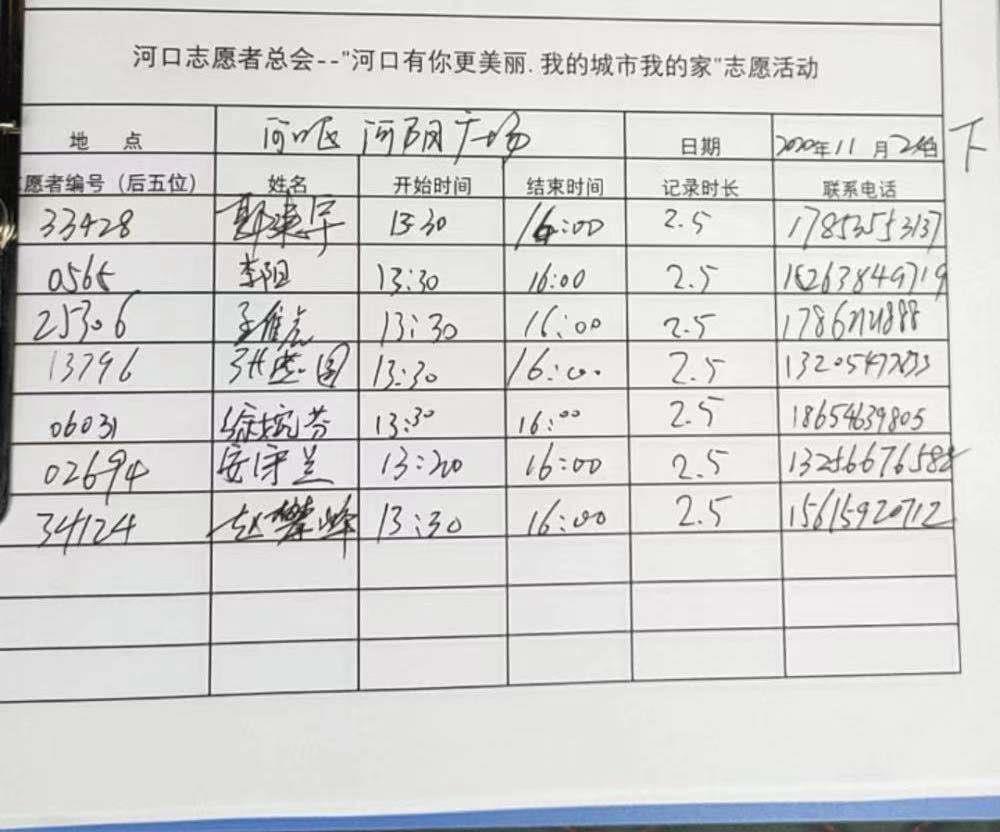 河口志愿者总会--"河口有你更美丽.我的城市我的家"志愿活动
地 点 河口区 河阳广场 日期 2020年11月24日 下
愿者编号（后五位） 姓名 开始时间 结束时间 记录时长 联系电话
33428 13:30 16:00 2.5 17853553137
0565 李阳 13:30 16:00 2.5 15263849719
25306 13:30 16:00 2.5
13796 13:30 16:00 2.5
06031 徐婉芬 13:30 16:00 2.5 18654639805
02694 安守兰 13:30 16:00 2.5 13256676582
34124 赵攀峰 13:30 16:00 2.5 15615920712